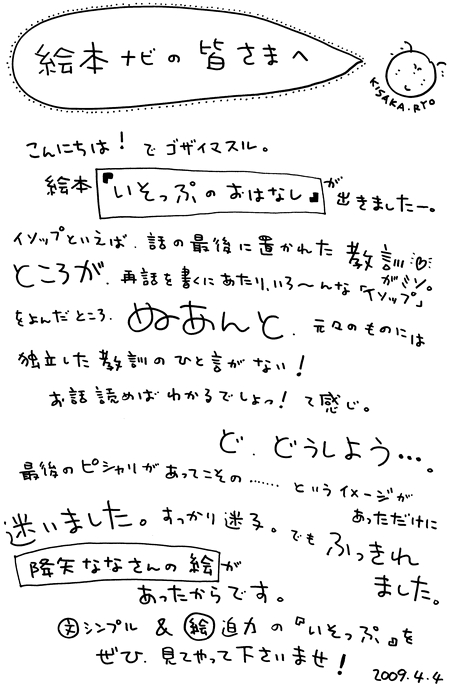 絵本ナビの皆さまへ
KISAKA.RYO
こんにちは！でゴザイマスル。
絵本『いそっぷのおはなし』が出きましたー。
イソップといえば、話の最後に置かれた教訓♡がミソ。
ところが、再話を書くにあたり、いろ〜んな「イソップ」
をよんだところ、ぬあんと、元々のものには
独立した教訓のひと言がない！
お話読めばわかるでしょっ！て感じ。
ど、どうしよう…。
最後のピシャリがあってこその……というイメージが
あっただけに
迷いました。すっかり迷子。でもふっきれ
ました。
降矢ななさんの絵が
あったからです。
文シンプル & 絵迫力の『いそっぷ』を
ぜひ、見てやって下さいませ！
2009.4.4